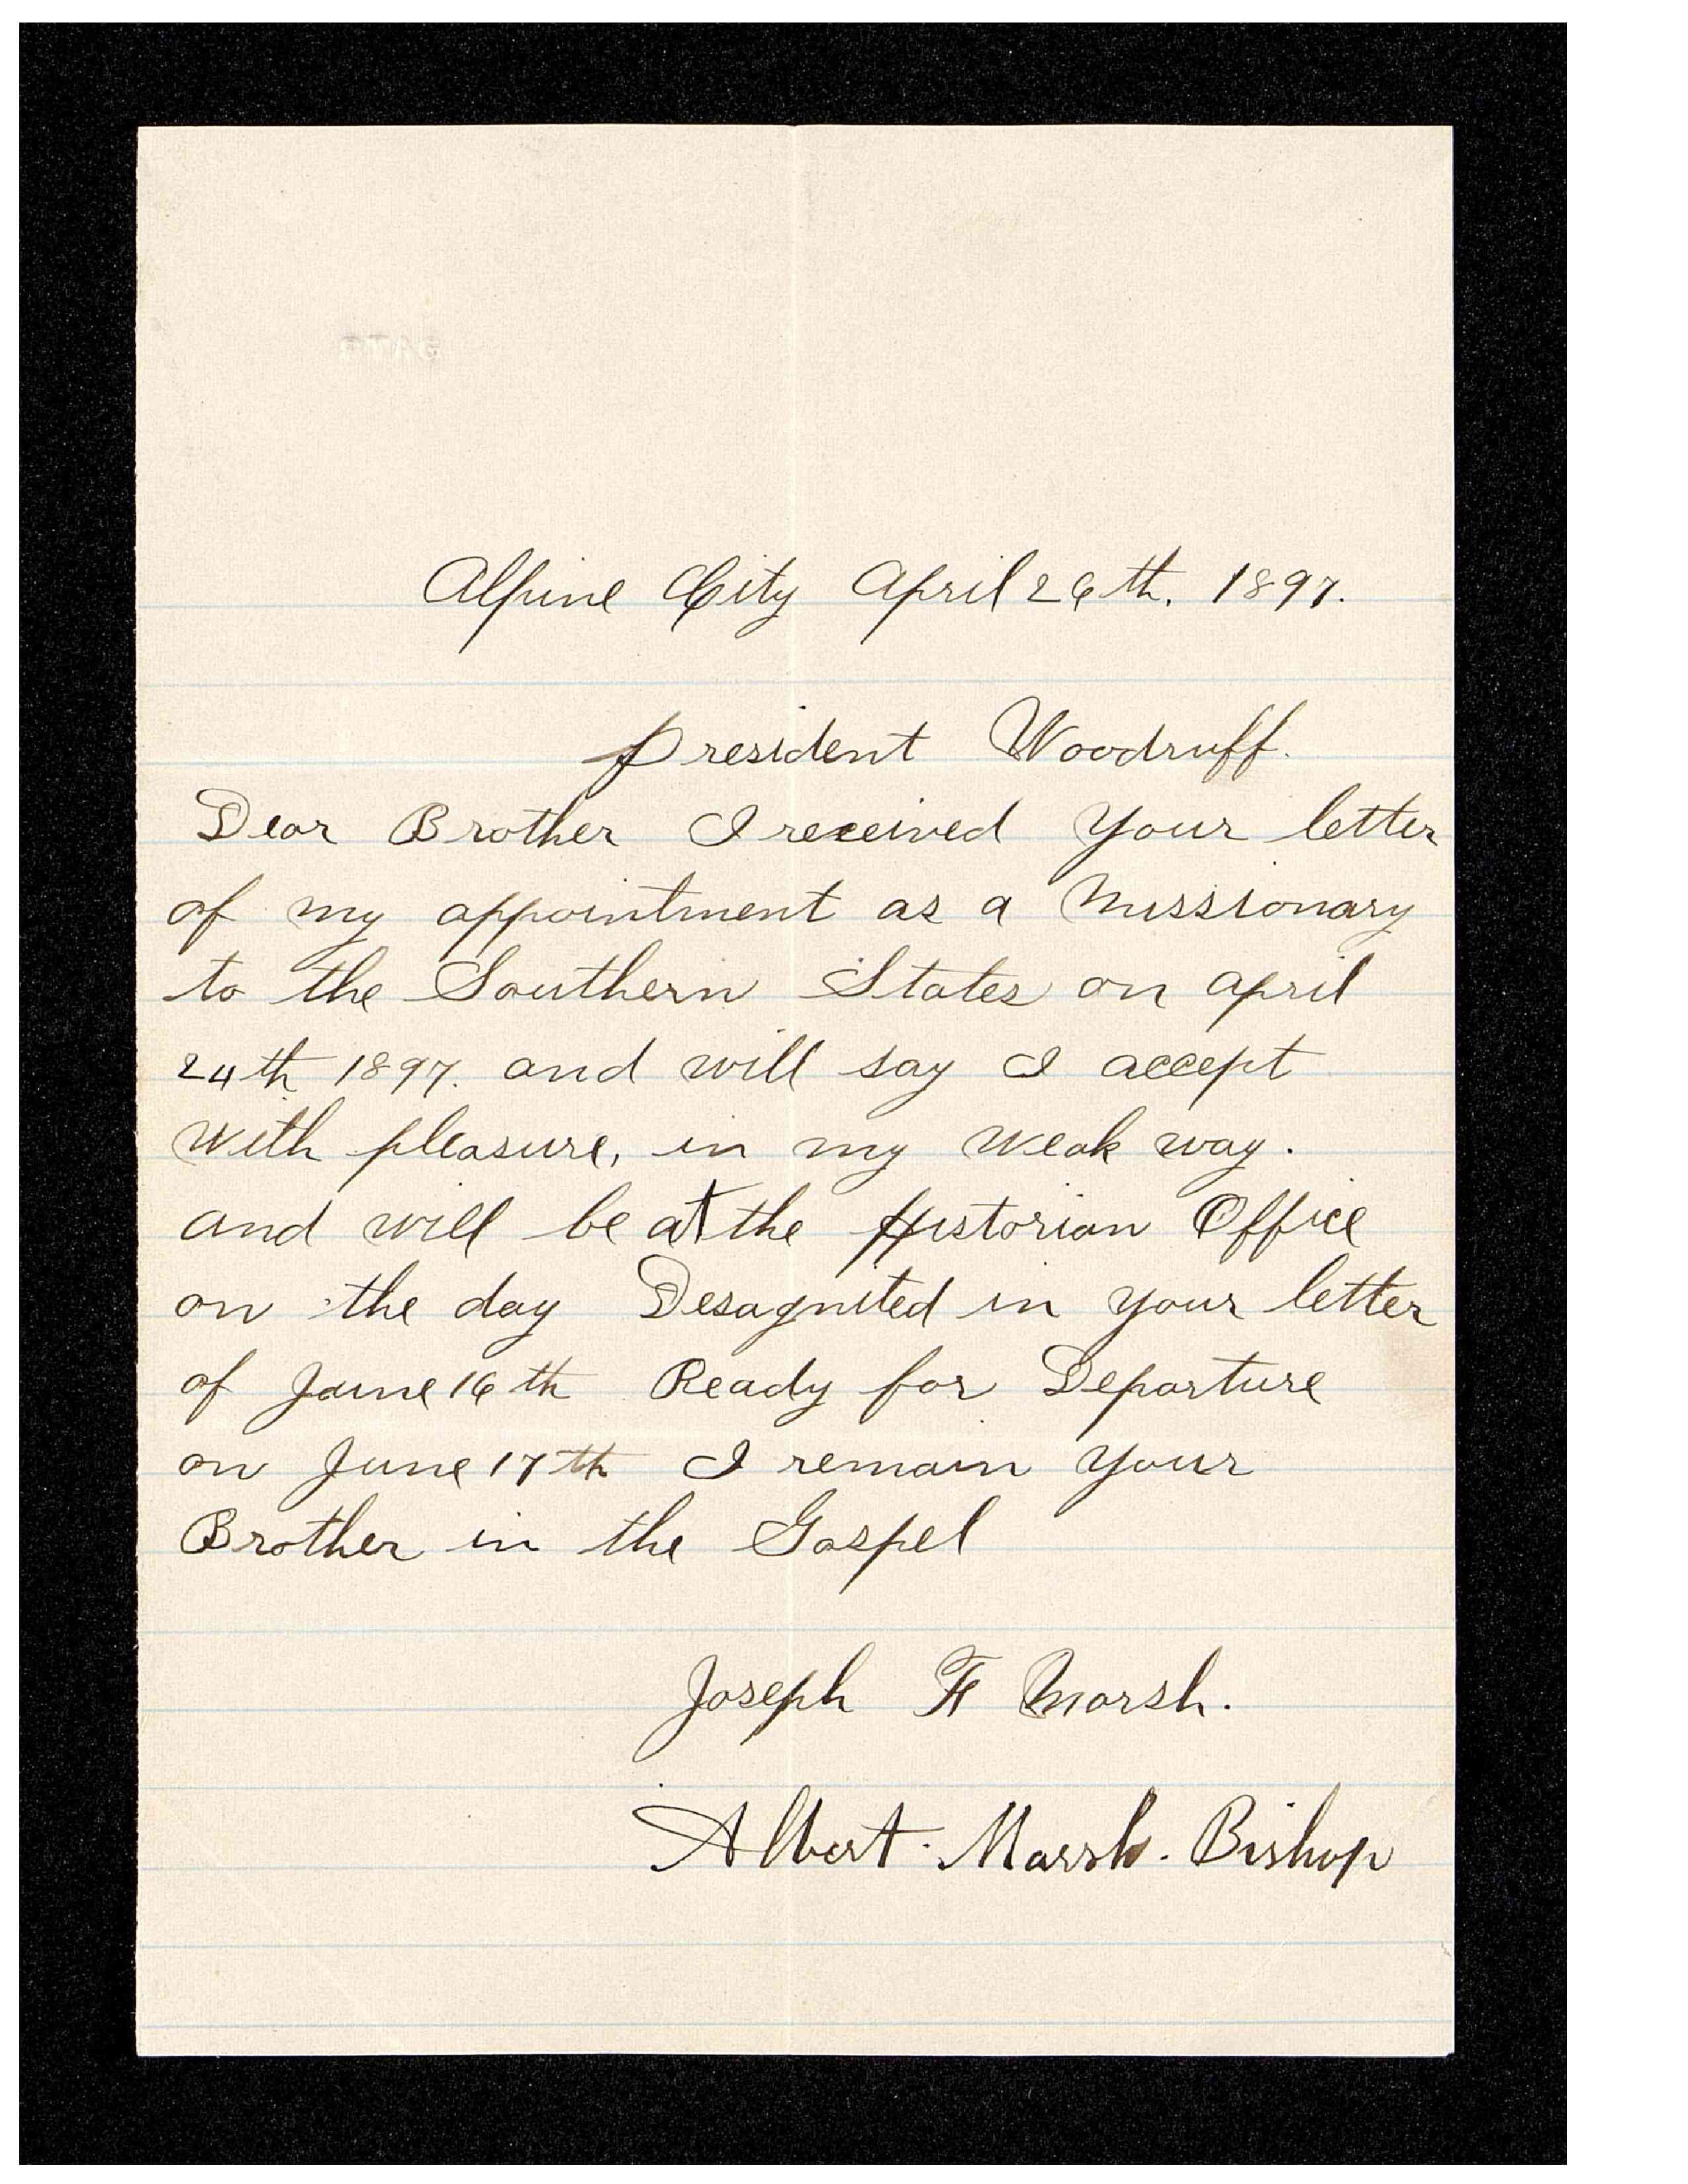 Alpine City April 26th. 1897.
President Woodruff.
Dear Brother I received your letter
of my appointment as a Missionary
to the Southern States on april
24th 1897. and will say I accept
with pleasure, in my weak way.
and will be at the Historian Office
on the day Desagnited in your letter
of June 16th Ready for Departure
on June 17th I remain your
Brother in the Gospel
Joseph F Marsh.
Albert Marsh. Bishop